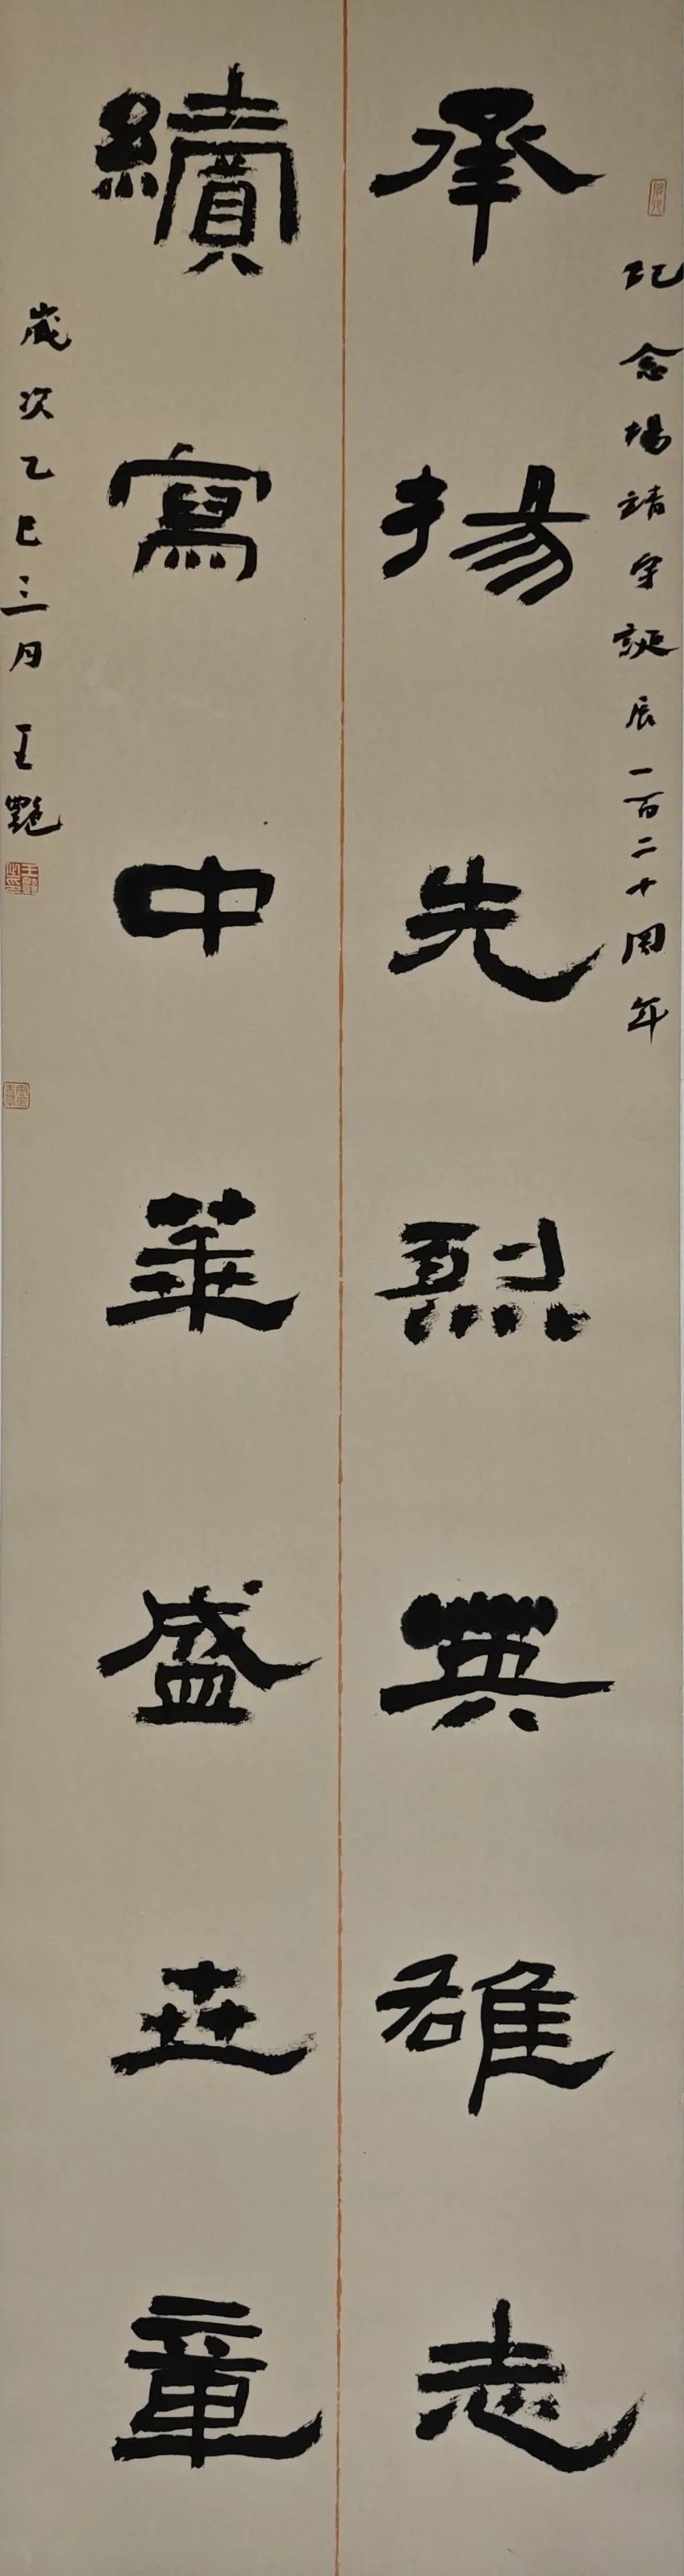 紀念楊靖宇誕辰一百二十周年
承揚先烈英雄志
續寫中華盛世章
歲次乙巳三月王艷